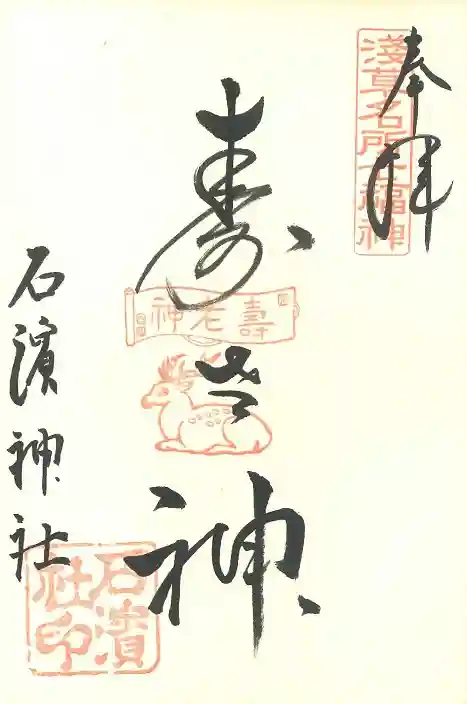 奉拝
淺草名所七福神
寿老神
壽老神
石濱神社
石濱
社印